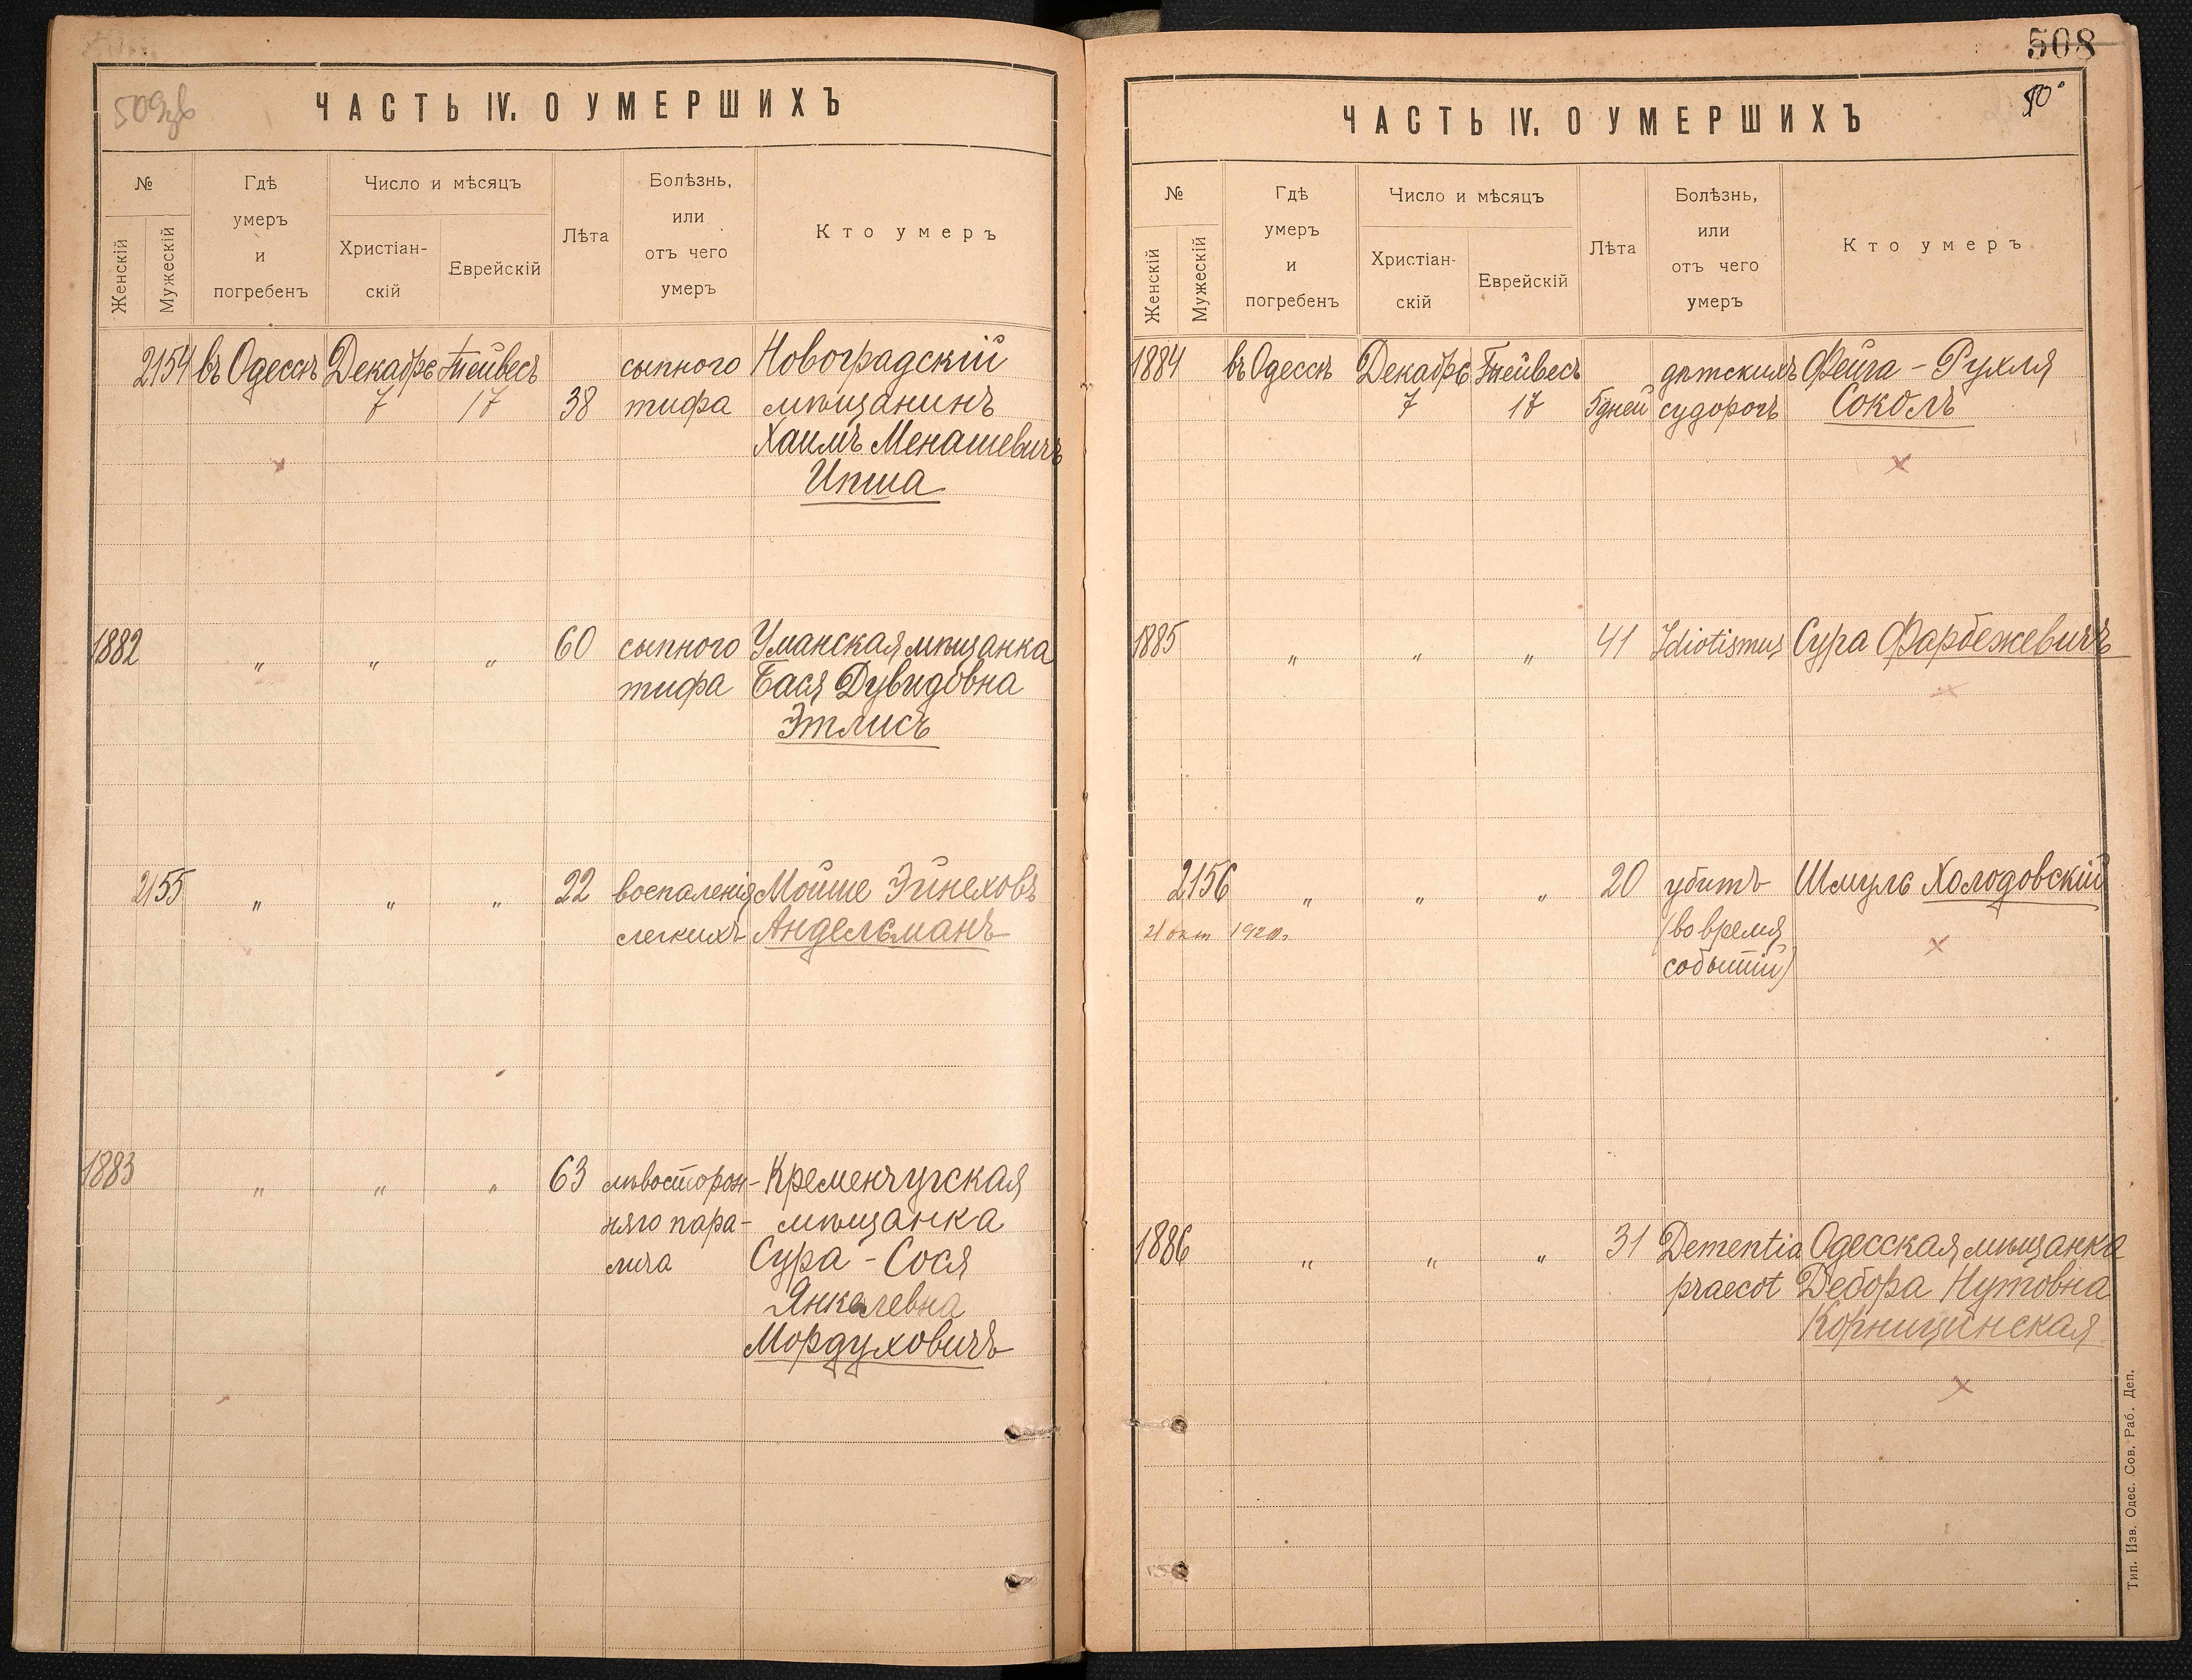 509зв
ЧАСТЬ IV. О УМЕРШИХЪ
№
Женскій
Мужескій
Гдѣ
умеръ
и
погребенъ
Число и мѣсяцъ
Христіан-
скій
Еврейскій
Лѣта
Болѣзнь,
или
отъ чего
умеръ
Кто умеръ
2154 въ Одессѣ Декабрь Тейвесъ сыпного Новоградскій
7 17 38 тифа мѣщанинъ
Хаимъ Менашевичъ
Ипша
1882 " " " 60 сыпного Уманская мѣщанка
тифа Бася Дувидовна
Этлисъ
2155 " " " 22 воспаленія Мойше Эйнеховъ
легкихъ Андельманъ
1883 " " " 63 лѣвосторон- Кременчугская
няго пара- мѣщанка
лича Сура-Сося
Янкелевна
Мордуховичъ
508
ЧАСТЬ IV. О УМЕРШИХЪ
№
Женскій
Мужескій
Гдѣ
умеръ
и
погребенъ
Число и мѣсяцъ
Христіан-
скій
Еврейскій
Лѣта
Болѣзнь,
или
отъ чего
умеръ
Кто умеръ
1884 въ Одессѣ Декабрь Тейвесъ дѣтскихъ Фейга-Рухля
7 17 5 дней судорогъ Соколъ
1885 " " " 41 Idiotismus Сура Фарбежевичъ
2156 " " " 20 убитъ Шмуль Холодовскій
21 окт (во время
событій)
1886 " " " 31 Dementia Одесская мѣщанка
praecot Дебора Нутовна
Корницинская
Тип. Изв. Одес. Сов. Раб. Деп.